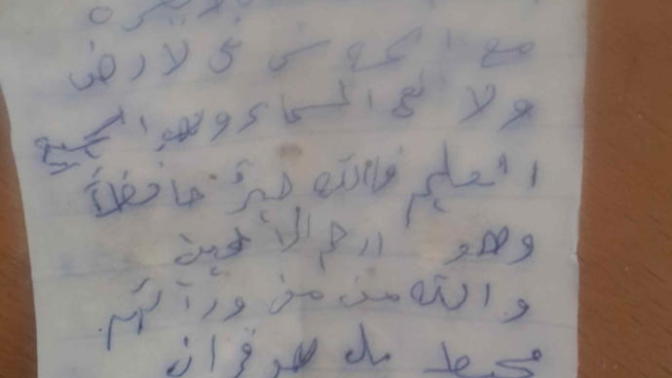 مع اسمه شئ في لارض
ولا في السماء وهو السميع
العليم فاالله خيرٌ حافظاً
وهو ارحم الراحمين
والله من من ورآئهم
محيط بل هو قران